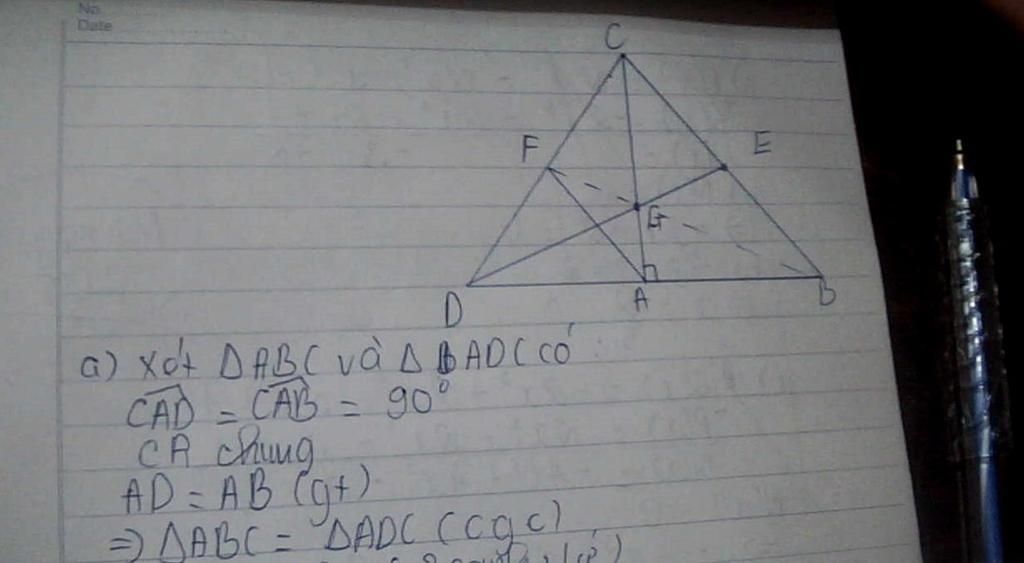 No.
Date
C
F
E
G
D
A
B
a) Xét ΔABC và ΔADC có
CAD = CAB = 90°
CA chung
AD = AB (gt)
=> ΔABC = ΔADC (cgc)